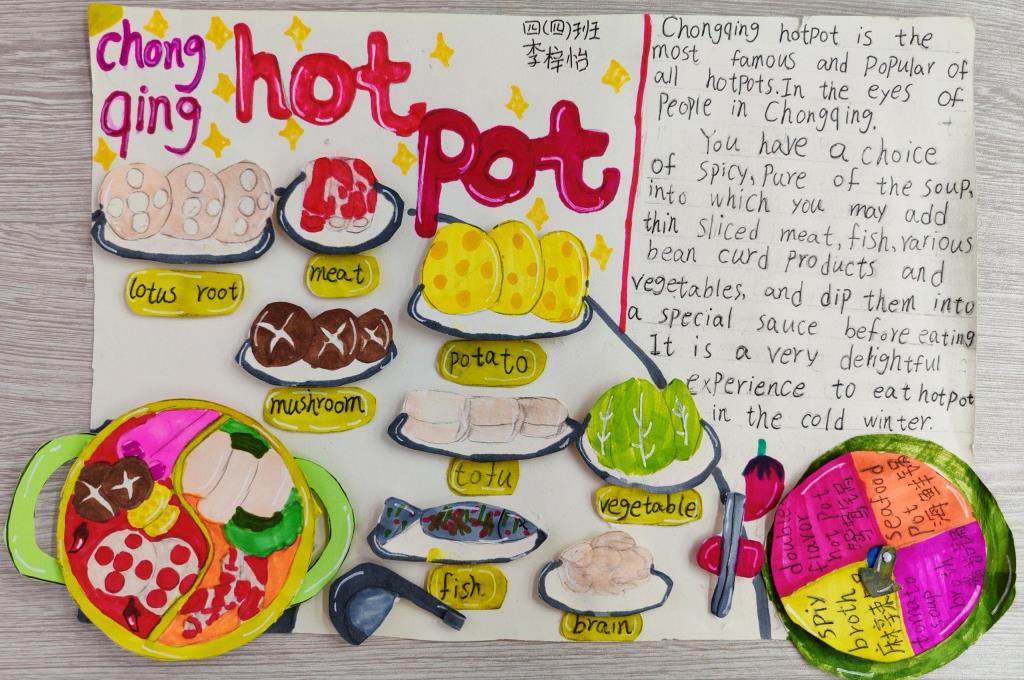 chong
qing
hot
pot
四(四)班
李梓怡
Chongqing hotpot is the
most famous and popular of
all hotpots. In the eyes of
People in Chongqing.
You have a choice
of spicy, Pure of the soup,
into which you may add
thin sliced meat, fish, various
bean curd products and
vegetables, and dip them into
a special sauce before eating
It is a very delightful
experience to eat hotpot
in the cold winter.
lotus root
meat
potato
mushroom
tofu
vegetable
fish
brain
double
flavor
hot pot
鸳鸯锅
seafood
pot
海鲜锅
spiy
broth
麻辣
tomato
soup